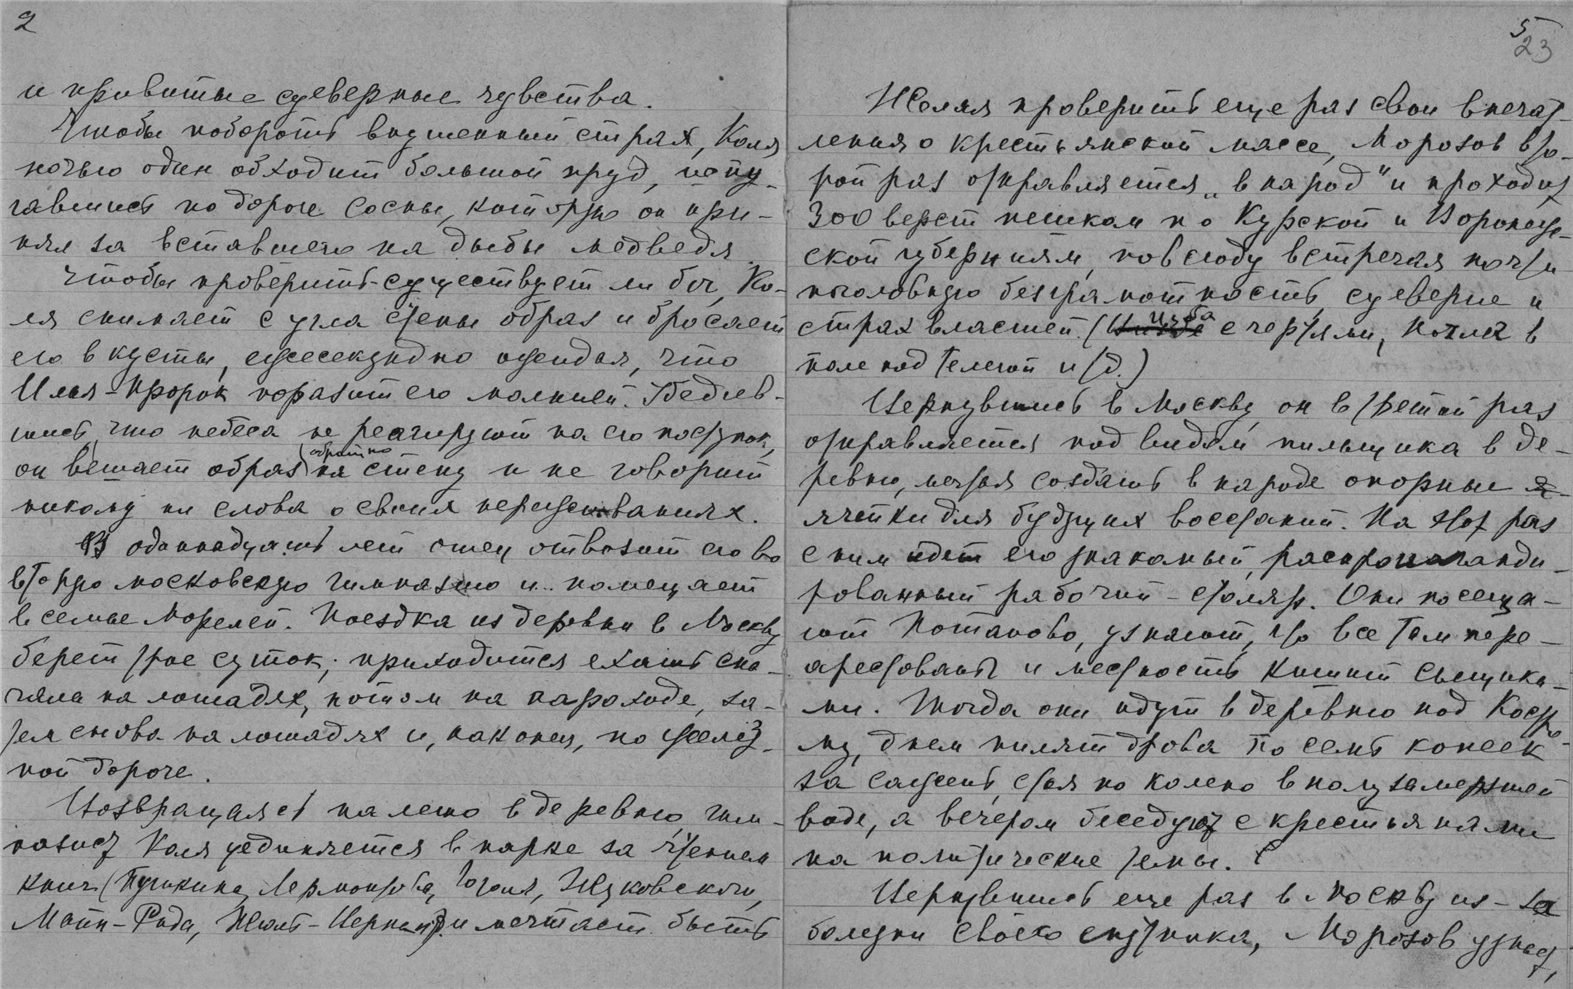 2
и привитые суеверные чувства.
Чтобы побороть внушенный страх, Коля
ночью один обходит большой пруд, испу-
гавшись по дороге сосны, которую он при-
нял за вставшего на дыбы медведя.
Чтобы проверить-существует ли бог, Ко-
ля снимает с угла стены образ и бросает
его в кусты, ежесекундно ожидая, что
Илья-пророк поразит его молнией. Убедив-
шись, что небеса не реагируют на его поступок,
обратно
он вешает образ на стену и не говорит
никому ни слова о своих переживаниях.
В одиннадцать лет отец отвозит его во
вторую московскую гимназию и помещает
в семье Морелей. Поездка из деревни в Москву
берет трое суток; приходится ехать сна-
чала на лошадях, потом на пароходе, за-
тем снова на лошадях и, наконец, по желез-
ной дороге.
Возвращаясь на лето в деревню гим-
назист Коля уединяется в парке за чтением
книг (Пушкина, Лермонтова, Гоголя, Жуковского,
Майн-Рида, Жюль-Верна) и мечтает быть
5
23
Желая проверить еще раз свои впечат-
ления о крестьянской массе, Морозов вто-
рой раз отправляется „в народ“ и проходит
300 верст пешком по Курской и Воронеж-
ской губерниям, повсюду встречая почти
поголовную безграмотность, суеверие и
изба
страх властей. (с чертями, ночлег в
поле под телегой и т.д.)
Вернувшись в Москву, он в третий раз
отправляется под видом пильщика в де-
ревню, мечтая создать в народе опорные я-
ячейки для будущих восстаний. На этот раз
с ним идет его знакомый, распропаганди-
рованный рабочий - столяр. Они посеща-
ют Потапово, узнают, что все там пере-
арестованы и местность кишит сыщика-
ми. Тогда они идут в деревню под Костро-
му, днем пилят дрова по семь копеек
за сажень, стоя по колено в полузамерзшей
воде, а вечером беседуют с крестьянами
на политические темы.
Вернувшись еще раз в Москву из-за
болезни своего спутника, Морозов узнает,